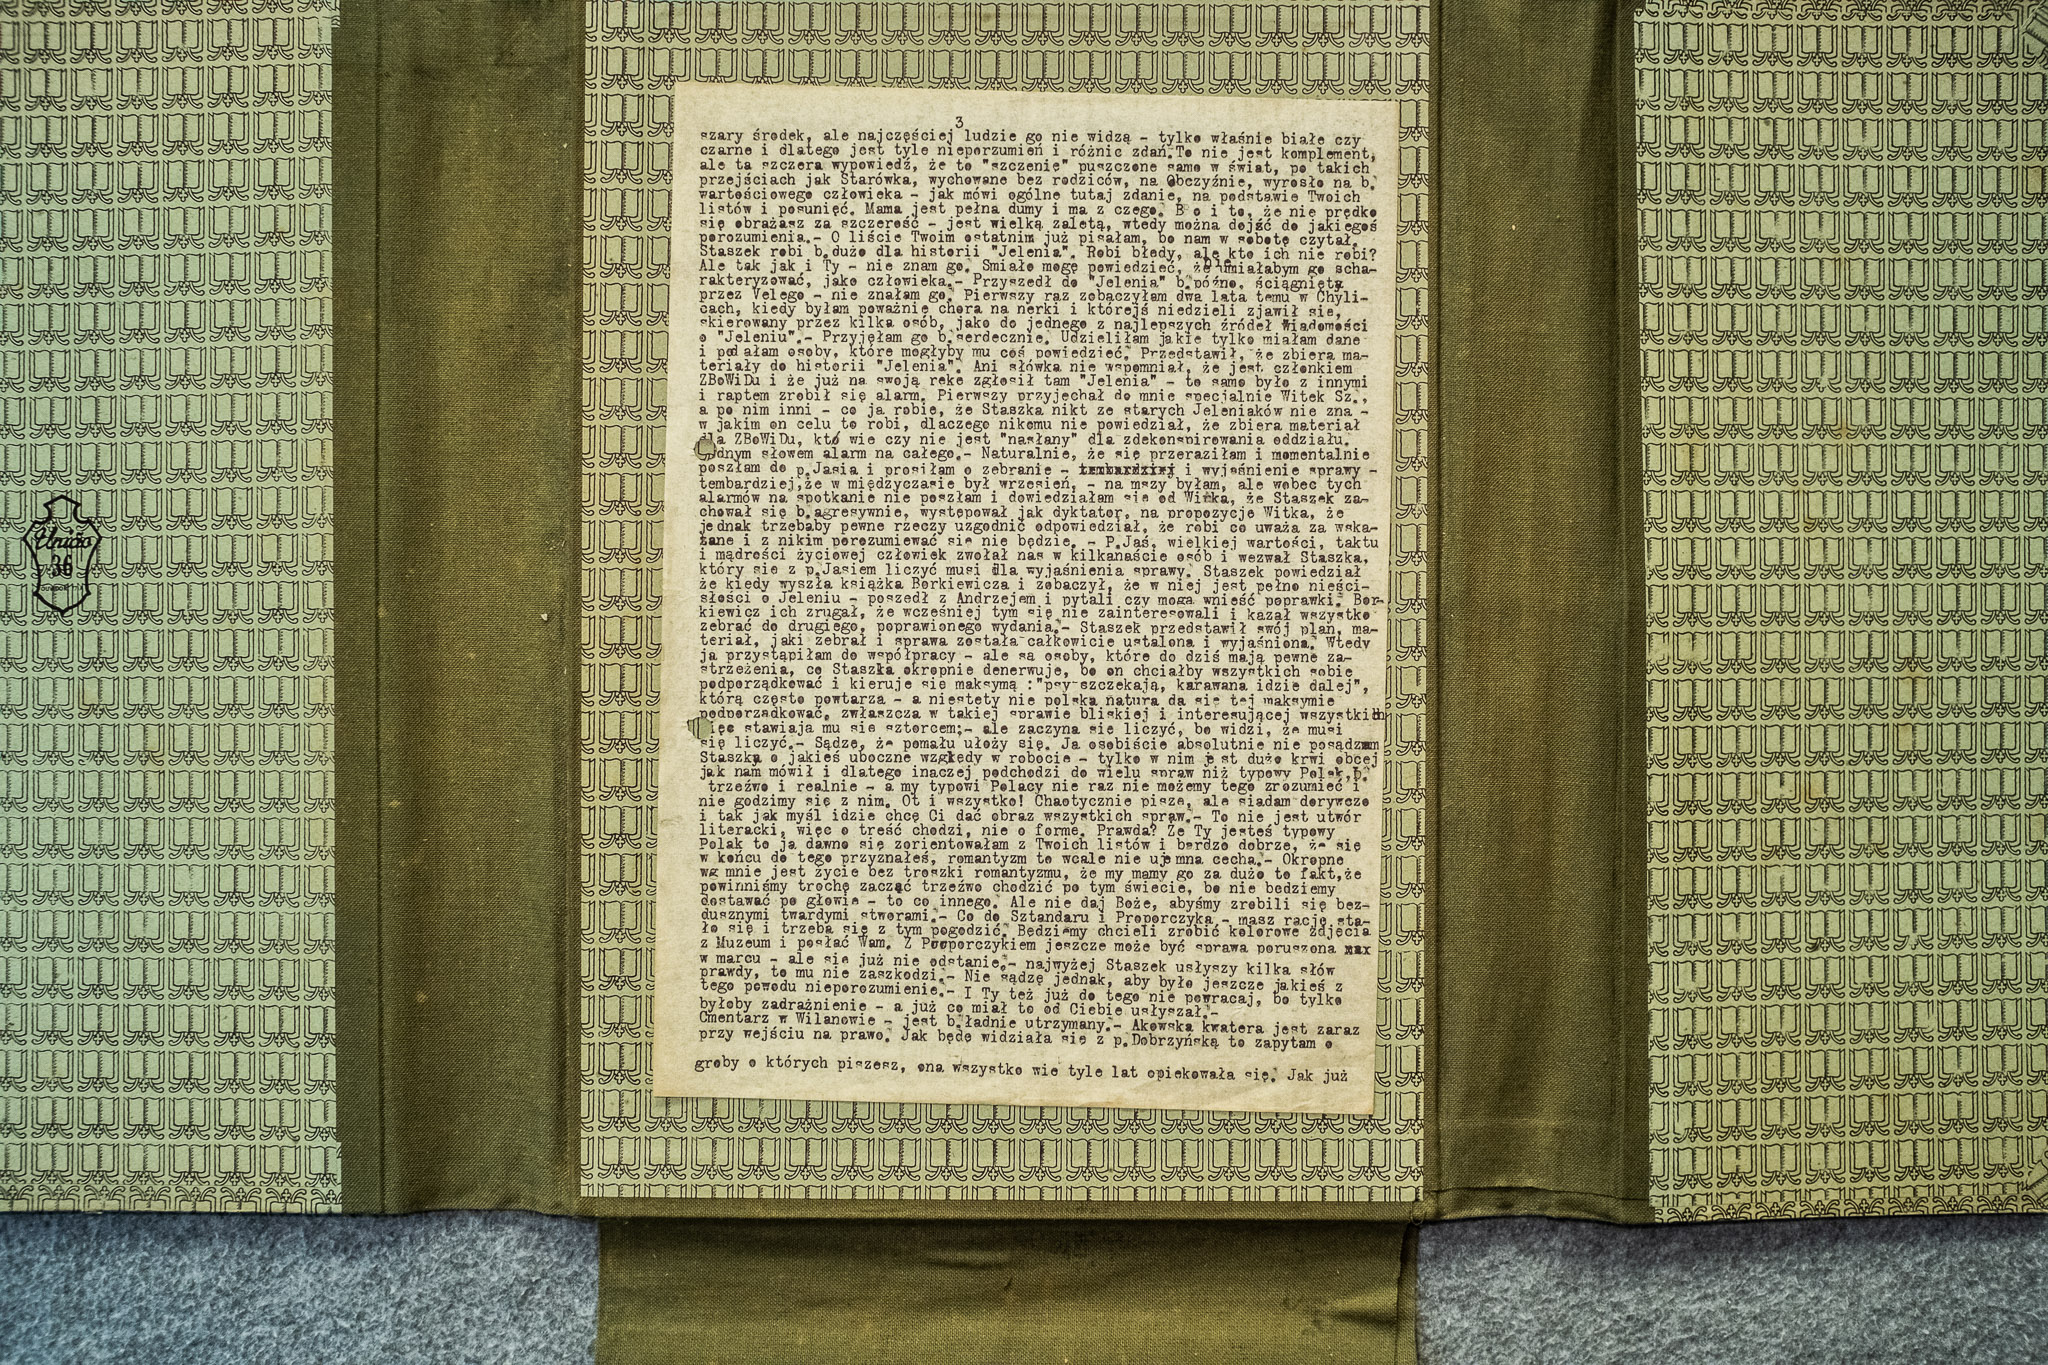 União
36
3
szary środek, ale najczęściej ludzie go nie widzą - tylko właśnie białe czy
czarne i dlatego jest tyle nieporzumień i różnic zdań.To nie jest komplement,
ale ta szczera wypowiedź, że to "szczenię" puszczone samo w świat, po takich
przejściach jak Starówka, wychowane bez rodziców, na Obczyźnie, wyrosło na b.
wartościowego człowieka - jak mówi ogólne tutaj zdanie, na podstawie Twoich
listów i posunięć. Mama jest pełna dumy i ma z czego. B o i to, że nie prędko
się obrażasz za szczerość - jest wielką zaletą, wtedy można dojść do jakiegoś
porozumienia.- O liście Twoim ostatnim już pisałam, bo nam w sobotę czytał.
Staszek robi b.dużo dla historii "Jelenia". Robi błędy, ale kto ich nie robi?
Ale tak jak i Ty - nie znam go. Śmiało mogę powiedzieć, że umiałabym go scha-
rakteryzować, jako człowieka.- Przyszedł do "Jelenia" b.późno, ściągnięty
przez Velego - nie znałam go. Pierwszy raz zobaczyłam dwa lata temu w Chyli-
cach, kiedy byłam poważnie chora na nerki i którejś niedzieli zjawił się,
skierowany przez kilka osób, jako do jednego z najlepszych źródeł wiadomości
o "Jeleniu".- Przyjęłam go b.serdecznie. Udzieliłam jakie tylko miałam dane
i podałam osoby, które mogłyby mu coś powiedzieć. Przedstawił, że zbiera ma-
teriały do historii "Jelenia". Ani słówka nie wspomniał, że jest członkiem
ZBoWiDu i że już na swoją rękę zgłosił tam "Jelenia" - to samo było z innymi
i raptem zrobił się alarm. Pierwszy przyjechał do mnie specjalnie Witek Sz.,
a po nim inni - co ja robie, że Staszka nikt ze starych Jeleniaków nie zna -
w jakim on celu to robi, dlaczego nikomu nie powiedział, że zbiera materiał
dla ZBoWiDu, kto wie czy nie jest "nasłany" dla zdekonspirowania oddziału.
ednym słowem alarm na całego.- Naturalnie, że się przeraziłam i momentalnie
poszłam do p.Jasia i prosiłam o zebranie - tembardziej i wyjaśnienie sprawy -
tembardziej,że w międzyczasie był wrzesień, - na mszy byłam, ale wobec tych
alarmów na spotkanie nie poszłam i dowiedziałam się od Witka, że Staszek za-
chował się b.agresywnie, występował jak dyktator, na propozycje Witka, że
jednak trzebaby pewne rzeczy uzgodnić odpowiedział, że robi co uważa za wska-
zane i z nikim porozumiewać się nie będzie. - P.Jaś, wielkiej wartości, taktu
i mądrości życiowej człowiek zwołał nas w kilkanaście osób i wezwał Staszka,
który się z p.Jasiem liczyć musi dla wyjaśnienia sprawy. Staszek powiedział
że kiedy wyszła książka Borkiewicza i zobaczył, że w niej jest pełno nieści-
słości o Jeleniu - poszedł z Andrzejem i pytali czy mogą wnieść poprawki. Bor-
kiewicz ich zrugał, że wcześniej tym się nie zainteresowali i kazał wszystko
zebrać do drugiego, poprawionego wydania.- Staszek przedstawił swój plan, ma-
teriał, jaki zebrał i sprawa została całkowicie ustalona i wyjaśniona. Wtedy
ja przystąpiłam do współpracy - ale są osoby, które do dziś mają pewne za-
strzeżenia, co Staszka okropnie denerwuje, bo on chciałby wszystkich sobie
podporządkować i kieruje się maksymą :"psy szczekają, karawana idzie dalej",
którą często powtarza - a niestety nie polska natura da się tej maksymie
podporządkować, zwłaszcza w takiej sprawie bliskiej i interesującej wszystkich
ięc stawiają mu się sztorcem;- ale zaczyna się liczyć, bo widzi, że musi
się liczyć.- Sądzę, że pomału ułoży się. Ja osobiście absolutnie nie posądzam
Staszka o jakieś uboczne względy w robocie - tylko w nim jest dużo krwi obcej
jak nam mówił i dlatego inaczej podchodzi do wielu spraw niż typowy Polak,b.
trzeźwo i realnie - a my typowi Polacy nie raz nie możemy tego zrozumieć i
nie godzimy się z nim. Ot i wszystko! Chaotycznie piszę, ale siadam dorywczo
i tak jak myśl idzie chcę Ci dać obraz wszystkich spraw.- To nie jest utwór
literacki, więc o treść chodzi, nie o formę. Prawda? Że Ty jesteś typowy
Polak to ja dawno się zorientowałam z Twoich listów i bardzo dobrze, że się
w końcu do tego przyznałeś, romantyzm to wcale nie ujemna cecha.- Okropne
wg mnie jest życie bez troszki romantyzmu, że my mamy go za dużo to fakt,że
powinniśmy trochę zacząć trzeźwo chodzić po tym świecie, bo nie będziemy
dostawać po głowie - to co innego. Ale nie daj Boże, abyśmy zrobili się bez-
dusznymi twardymi stworami.- Co do Sztandaru i Proporczyka - masz rację sta-
ło się i trzeba się z tym pogodzić. Będziemy chcieli zrobić kolorowe zdjęcia
z Muzeum i posłać Wam. Z Proporczykiem jeszcze może być sprawa poruszona xxx
w marcu - ale się już nie odstanie.- najwyżej Staszek usłyszy kilka słów
prawdy, to mu nie zaszkodzi.- Nie sądzę jednak, aby było jeszcze jakieś z
tego powodu nieporozumienie.- I Ty też już do tego nie powracaj, bo tylko
byłoby zadrażnienie - a już co miał to od Ciebie usłyszał.-
Cmentarz w Wilanowie - jest b.ładnie utrzymany.- Akowska kwatera jest zaraz
przy wejściu na prawo. Jak będę widziała się z p.Dobrzyńską to zapytam o
groby o których piszesz, ona wszystko wie tyle lat opiekowała się. Jak już